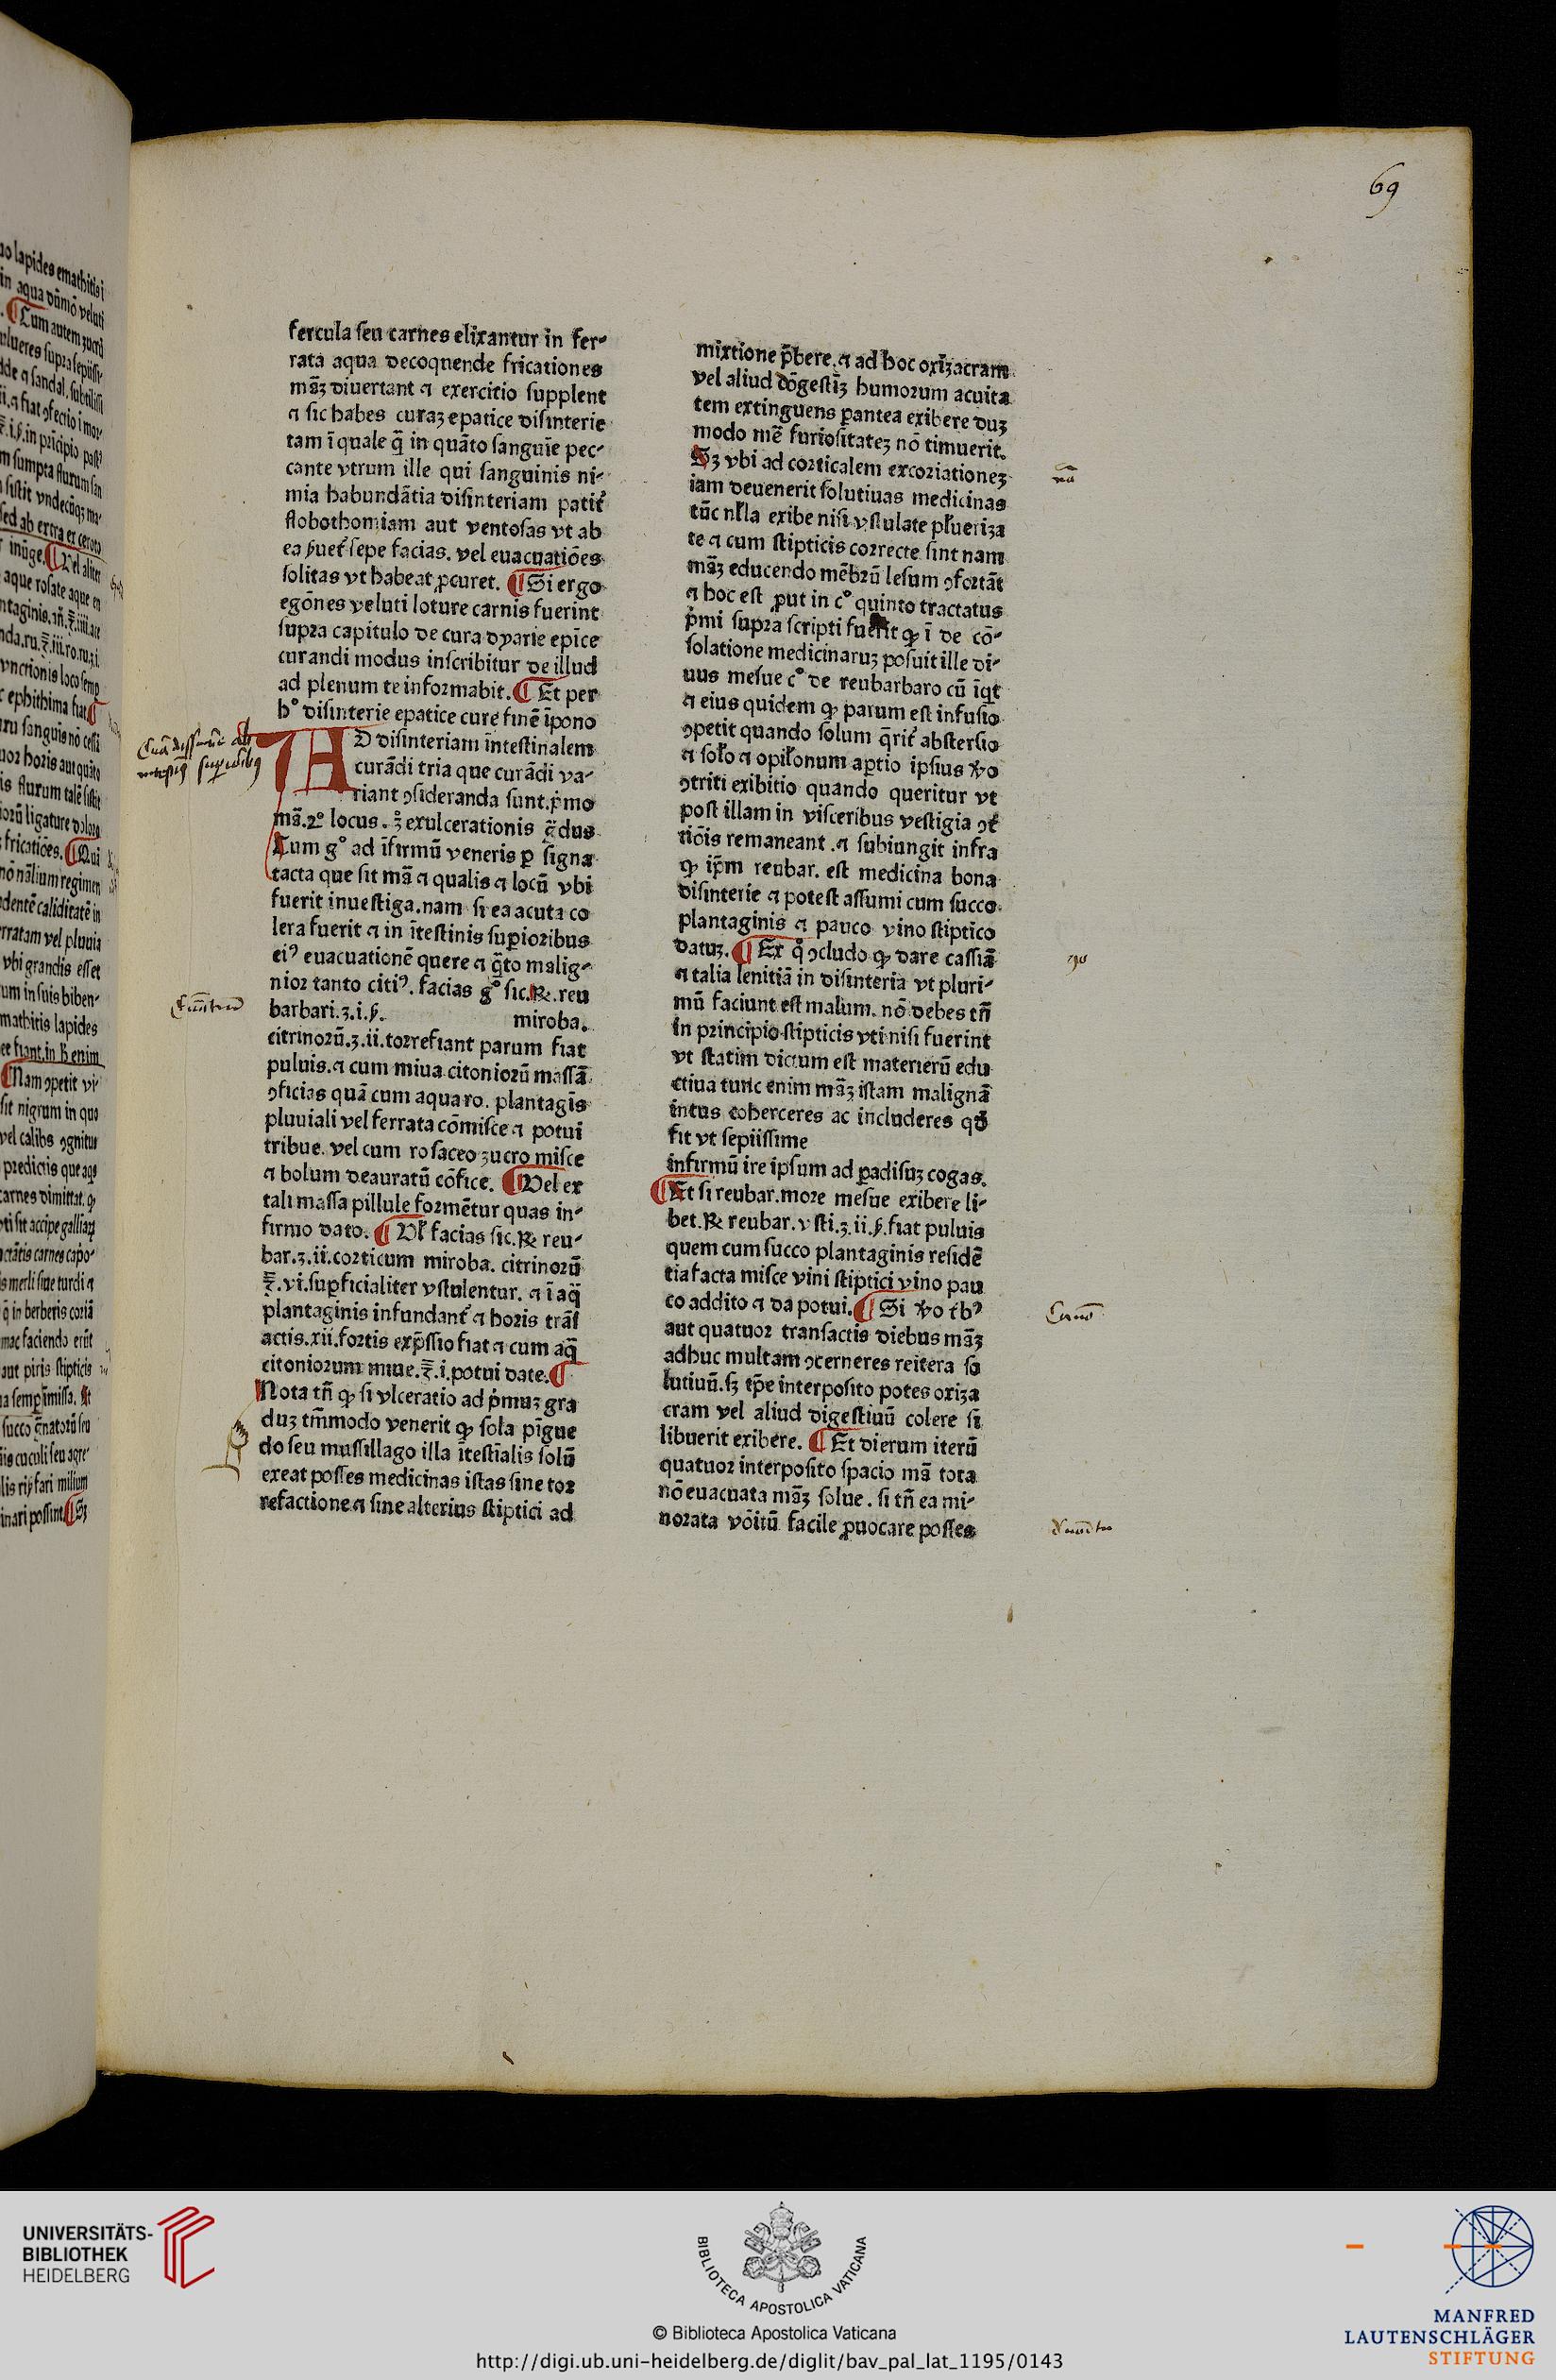 69
fercula ſeu carnes elixantur in fer⸗
rata aqua decoquende fricationes
mãʒ diuertant ⁊ exercitio ſupplent
⁊ ſic habes curaʒ epatice diſinterie
tam ĩ quale q̃ in quãto ſanguĩe pec⸗
cante vtrum ille qui ſanguinis ni⸗
mia habundãtia diſinteriam patit᷑
flobothomiam aut ventoſas vt ab
ſepe facias. vel euacuatiões
ſolitas vt habeat ꝓcuret. ¶ Si ergo
egõnes veluti loture carnis fuerint
ſupra capitulo de cura dyarie epĩce
curandi modus inſcribitur de illud
ad plenum te informabit. ¶ Et per
h° diſinterie epatice cure finẽ ĩpono
AD diſinteriam ĩnteſtinalem
curãdi tria que curãdi va⸗
riant ꝯſideranda ſunt. p̓mo
mã. 2° locus. ʒ° exulcerationis g̃dus
Cum g° ad ĩfirmũ veneris ꝑ ſigna
tacta que ſit mã ⁊ qualis ⁊ locũ vbi
fuerit inueſtiga. nam ſi ea acuta co
lera fuerit ⁊ in ĩteſtinis ſuꝑioribus
eiꝰ euacuationẽ quere ⁊ q̃to malig⸗
nior tanto citiꝰ. facias g° ſic. ℞. reu
barbari. ʒ. i. ß. miroba.
citrinorũ. ʒ. ii. torrefiant parum fiat
puluis. ⁊ cum miua citoniorũ maſſã
ꝯficias quã cum aqua ro. plantagĩs
pluuiali vel ferrata cõmiſce ⁊ potui
tribue. vel cum roſaceo ʒucro miſce
⁊ bolum deauratũ cõfice. ¶ Vel ex
tali maſſa pillule formẽtur quas in⸗
firmo dato. ¶ Vl̓ facias ſic. ℞ reu⸗
bar. ʒ. ii. corticum miroba. citrinorũ
℥. vi. ſuꝑficialiter vſtulentur. ⁊ ĩ aq̃
plantaginis infundant᷑ ⁊ horis trãſ
actis. xii. fortis exp̃ſſio fiat ⁊ cum aq̃
citoniorum miue. ℥. i. potui date. ¶
Nota tñ ꝙ ſi vlceratio ad p̓muʒ gra
duʒ tm̃modo venerit ꝙ ſola pĩgue
do ſeu muſſillago illa ĩteſtĩalis ſolũ
exeat poſſes medicinas iſtas ſine tor
refactione ⁊ ſine alterius ſtiptici ad
mixtione p̃bere. ⁊ ad hoc oxiʒacram
vel aliud dõgeſtĩʒ humorum acuita
tem extinguens ꝑantea exibere duʒ
modo mẽ furioſitateʒ nõ timuerit.
Sʒ vbi ad corticalem excoriationeʒ
iam deuenerit ſolutiuas medicinas
tũc nl̓la exibe niſi vſtulate pl̓ueriʒa
te ⁊ cum ſtipticis correcte ſint nam
mãʒ educendo mẽbrũ leſum ꝯfortãt
⁊ hoc eſt ꝓut in c° quinto tractatus
p̓mi ſupra ſcripti fuerit ꝙ ĩ de cõ⸗
ſolatione medicinaruʒ poſuit ille di⸗
uus meſue c° de reubarbaro cũ ĩqt
⁊ eius quidem ꝙ parum eſt infuſio
ꝯpetit quando ſolum q̃rit᷑ abſterſio
⁊ ſol̓o ⁊ opil̓onum aꝑtio ipſius v̓o
ꝯtriti exibitio quando queritur vt
poſt illam in viſceribus veſtigia ꝯt᷑
riõis remaneant. ⁊ ſubiungit infra
ꝙ ip̃m reubar. eſt medicina bona
diſinterie ⁊ poteſt aſſumi cum ſucco
plantaginis ⁊ pauco vino ſtiptico
datuʒ. ¶ Ex q° ꝯcludo ꝙ dare caſſiã
⁊ talia lenitiã in diſinteria vt pluri⸗
mũ faciunt eſt malum. nõ debes tñ
in principio ſtipticis vti niſi fuerint
vt ſtatim dictum eſt materierũ edu
ctiua tunc enim mãʒ iſtam malignã
intus coherceres ac includeres qđ
fit vt ſepiiſſime
infirmũ ire ipſum ad ꝑadiſuʒ cogas.
¶ Et ſi reubar. more meſue exibere li⸗
bet. ℞ reubar. vſti. ʒ. ii. ß. fiat puluis
quem cum ſucco plantaginis reſidẽ
tia facta miſce vini ſtiptici vino pau
co addito ⁊ da potui. ¶ Si v̓o t᷑bꝰ
aut quatuor tranſactis diebus mãʒ
adhuc multam ꝯcerneres reitera ſo
lutiuũ. ſʒ tp̃e interpoſito potes oxiʒa
cram vel aliud digeſtiuũ colere ſi
libuerit exibere. ¶ Et dierum iterũ
quatuor interpoſito ſpacio mã tota
nõ euacuata mãʒ ſolue. ſi tñ ea mi⸗
norata võitũ facile ꝓuocare poſſes
UNIVERSITÄTS-
BIBLIOTHEK
HEIDELBERG
BIBLIOTECA APOSTOLICA VATICANA
© Biblioteca Apostolica Vaticana
http://digi.ub.uni-heidelberg.de/diglit/bav_pal_lat_1195/0143
MANFRED
LAUTENSCHLÄGER
STIFTUNG